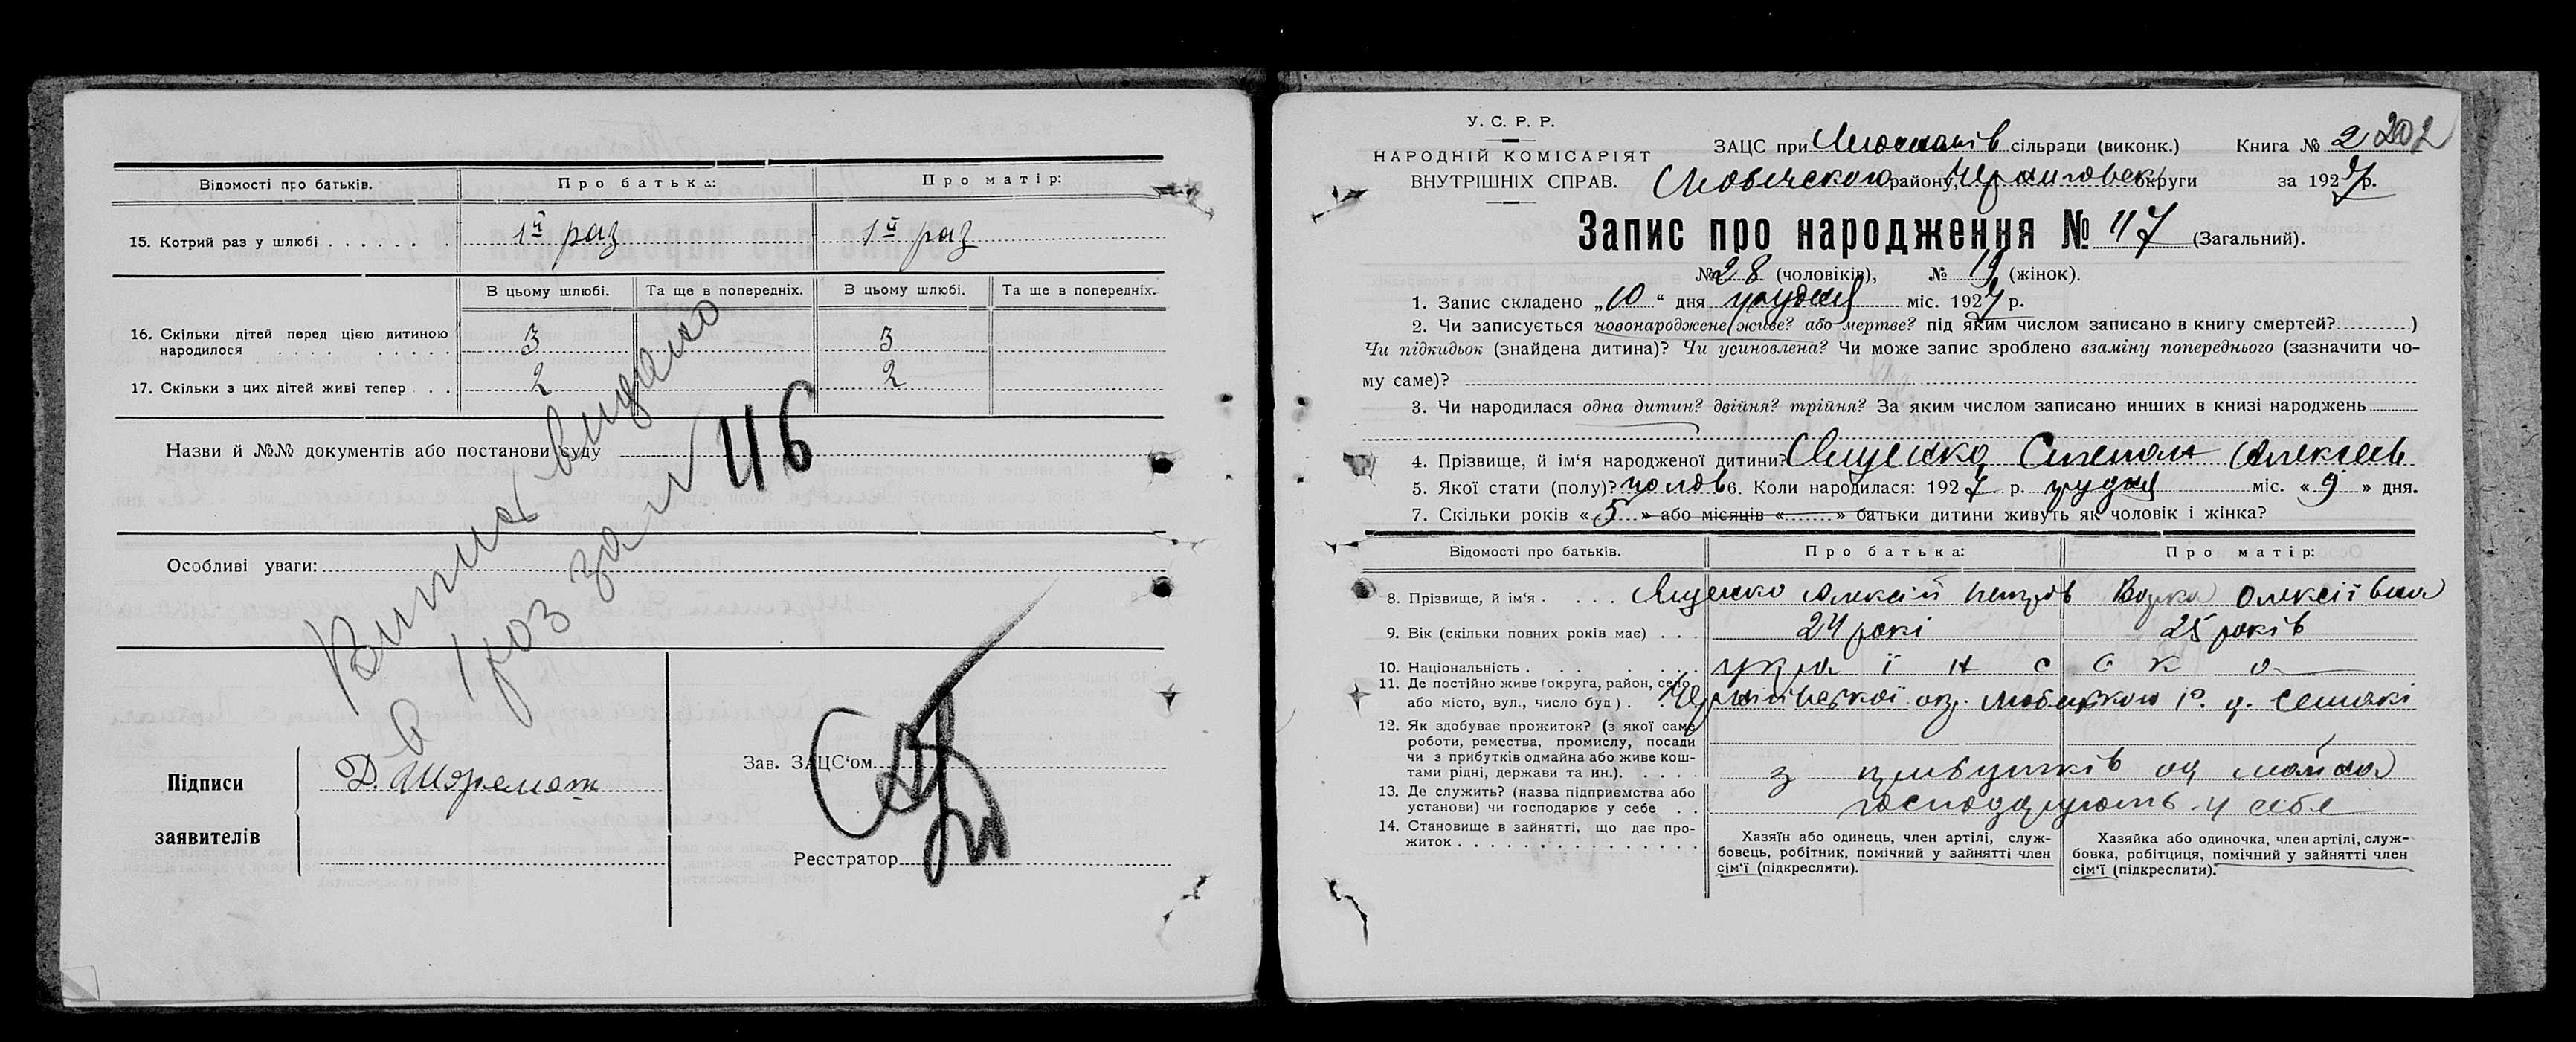 Відомості про батьків. Про батька: Про матір:
15. Котрий раз у шлюбі 1й раз 1й раз
В цьому шлюбі. Та ще в попередніх. В цьому шлюбі. Та ще в попередніх.
16. Скільки дітей перед цією дитиною 3 3
народилося
17. Скільки з цих дітей живі тепер 2 2
Назви й №№ документів або постанови суду
116
Особливі уваги:
видано
за №
Підписи
заявителів
Зав. ЗАЦС'ом
Реєстратор
У. С. Р. Р.
НАРОДНІЙ КОМІСАРІЯТ
ВНУТРІШНІХ СПРАВ.
ЗАЦС при сільради (виконк.) Книга № 2 202
району, округи за 1927 р.
Запис про народження № 47 (Загальний).
№ 28 (чоловіків), № 19 (жінок).
1. Запис складено „10“ дня грудня міс. 1927 р.
2. Чи записується новонароджене (живе? або мертве? під яким числом записано в книгу смертей? )
Чи підкидьок (знайдена дитина)? Чи усиновлена? Чи може запис зроблено взаміну попереднього (зазначити чо-
му саме)?
3. Чи народилася одна дитин? двійня? трійня? За яким числом записано инших в книзі народжень
4. Прізвище, й ім'я народженої дитини? Ященко Степан Алексеев
5. Якої стати (полу)? 6. Коли народилася: 1927 р. грудня міс. «9» дня.
7. Скільки років «5» або місяців « » батьки дитини живуть як чоловік і жінка?
Відомості про батьків. Про батька: Про матір:
8. Прізвище, й ім'я Ященко Алексій Петров Варка Олексіївна
9. Вік (скільки повних років має) 24 рокі 25 років
10. Національність українсска
11. Де постійно живе (округа, район, село
або місто, вул., число буд) окр.
12. Як здобуває прожиток? (з якої саме
роботи, ремества, промислу, посади
чи з прибутків одмайна або живе кош-
тами рідні, держави та ин.). з прибутків од майна
13. Де служить? (назва підприємства або
установи) чи господарює у себе господарюють у себе
14. Становище в зайнятті, що дає про-
житок
Хазяїн або одинець, член артілі, служ-
бовець, робітник, помічний у зайнятті член
сім'ї (підкреслити).
Хазяйка або одиночка, член артілі, служ-
бовка, робітниця, помічний у зайнятті член
сім'ї (підкреслити).